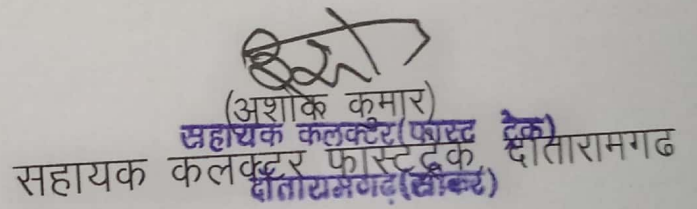 (अशोक कुमार)
सहायक कलक्टर(फास्ट ट्रेक)
सहायक कलक्टर फास्टट्रेक, दांतारामगढ
दांतारामगढ़(सीकर)